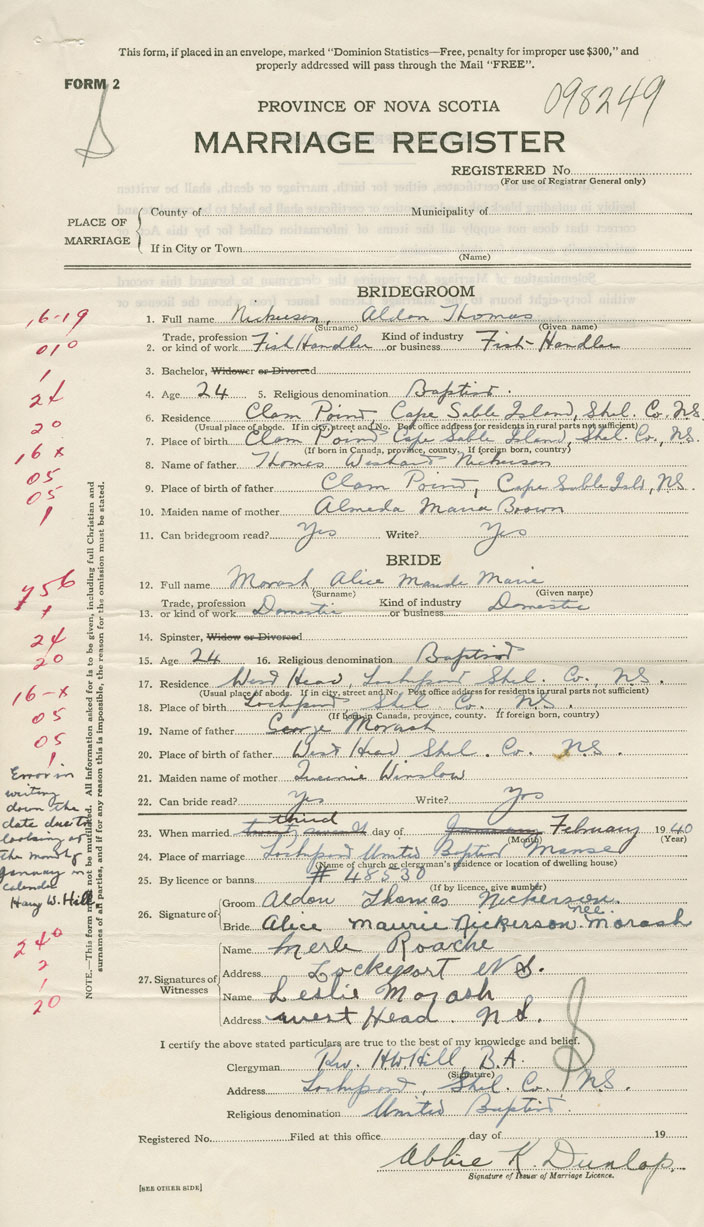 This form, if placed in an envelope, marked "Dominion Statistics—Free, penalty for improper use $300," and
properly addressed will pass through the Mail "FREE".
FORM 2
098249
PROVINCE OF NOVA SCOTIA
MARRIAGE REGISTER
REGISTERED No.
(For use of Registrar General only)
PLACE OF MARRIAGE
County of Municipality of
If in City or Town
(Name)
BRIDEGROOM
16-19
1. Full name Nickerson, Aldon Thomas
(Surname) (Given name)
010
2. Trade, profession or kind of work Fish Handler Kind of industry or business Fish-Handler
1
3. Bachelor, Widower or Divorced
24
4. Age 24 5. Religious denomination Baptist.
20
6. Residence Clam Point, Cape Sable Island, Shel. Co. NS
(Usual place of abode. If in city, street and No. Post office address for residents in rural parts not sufficient)
16 x
7. Place of birth Clam Point Cape Sable Island, Shel. Co., NS.
(If born in Canada, province, county. If foreign born, country)
05
8. Name of father Thomas Nickerson
05
9. Place of birth of father Clam Point, Cape Sable Isld, NS.
1
10. Maiden name of mother Almeda Brown
11. Can bridegroom read? Yes Write? Yes
BRIDE
756
12. Full name Morash, Alice Maude Marie
(Surname) (Given name)
13. Trade, profession or kind of work Domestic Kind of industry or business Domestic
24
14. Spinster, Widow or Divorced
20
15. Age 24 16. Religious denomination Baptist
16-x
17. Residence West Head, Lockeport Shel. Co., NS.
(Usual place of abode. If in city, street and No. Post office address for residents in rural parts not sufficient)
05
18. Place of birth Lockeport Shel Co. NS.
(If born in Canada, province, county. If foreign born, country)
19. Name of father George Morash
05
20. Place of birth of father West Head Shel. Co. NS.
1
21. Maiden name of mother Winslow
22. Can bride read? Yes Write? Yes
Error in
writing
down the
date due to
looking at
the month of
January in
calendar
Harry W. Hill
NOTE.—This form must not be mutilated. All information asked for is to be given, including full Christian and
surnames of all parties, and if for any reason this is impossible, the reason for the omission must be stated.
third
23. When married twenty seventh day of January February 1940
(Month) (Year)
24. Place of marriage Lockeport United Baptist Manse
(Name of church or clergyman's residence or location of dwelling house)
25. By licence or banns # 48530
(If by licence, give number)
26. Signature of
Groom Aldon Thomas Nickerson
nee
Bride Alice Maurie Nickerson. Morash
240
2
1
20
27. Signatures of Witnesses
Name Merle Roache
Address Lockeport N S.
Name Leslie Morash
Address West Head. N S.
I certify the above stated particulars are true to the best of my knowledge and belief.
Clergyman Rev. H W Hill, B.A.
(Signature)
Address Lockeport, Shel. Co. NS.
Religious denomination United Baptist.
Registered No. Filed at this office day of 19
Abbie K. Dunlop
Signature of Issuer of Marriage Licence.
[SEE OTHER SIDE]